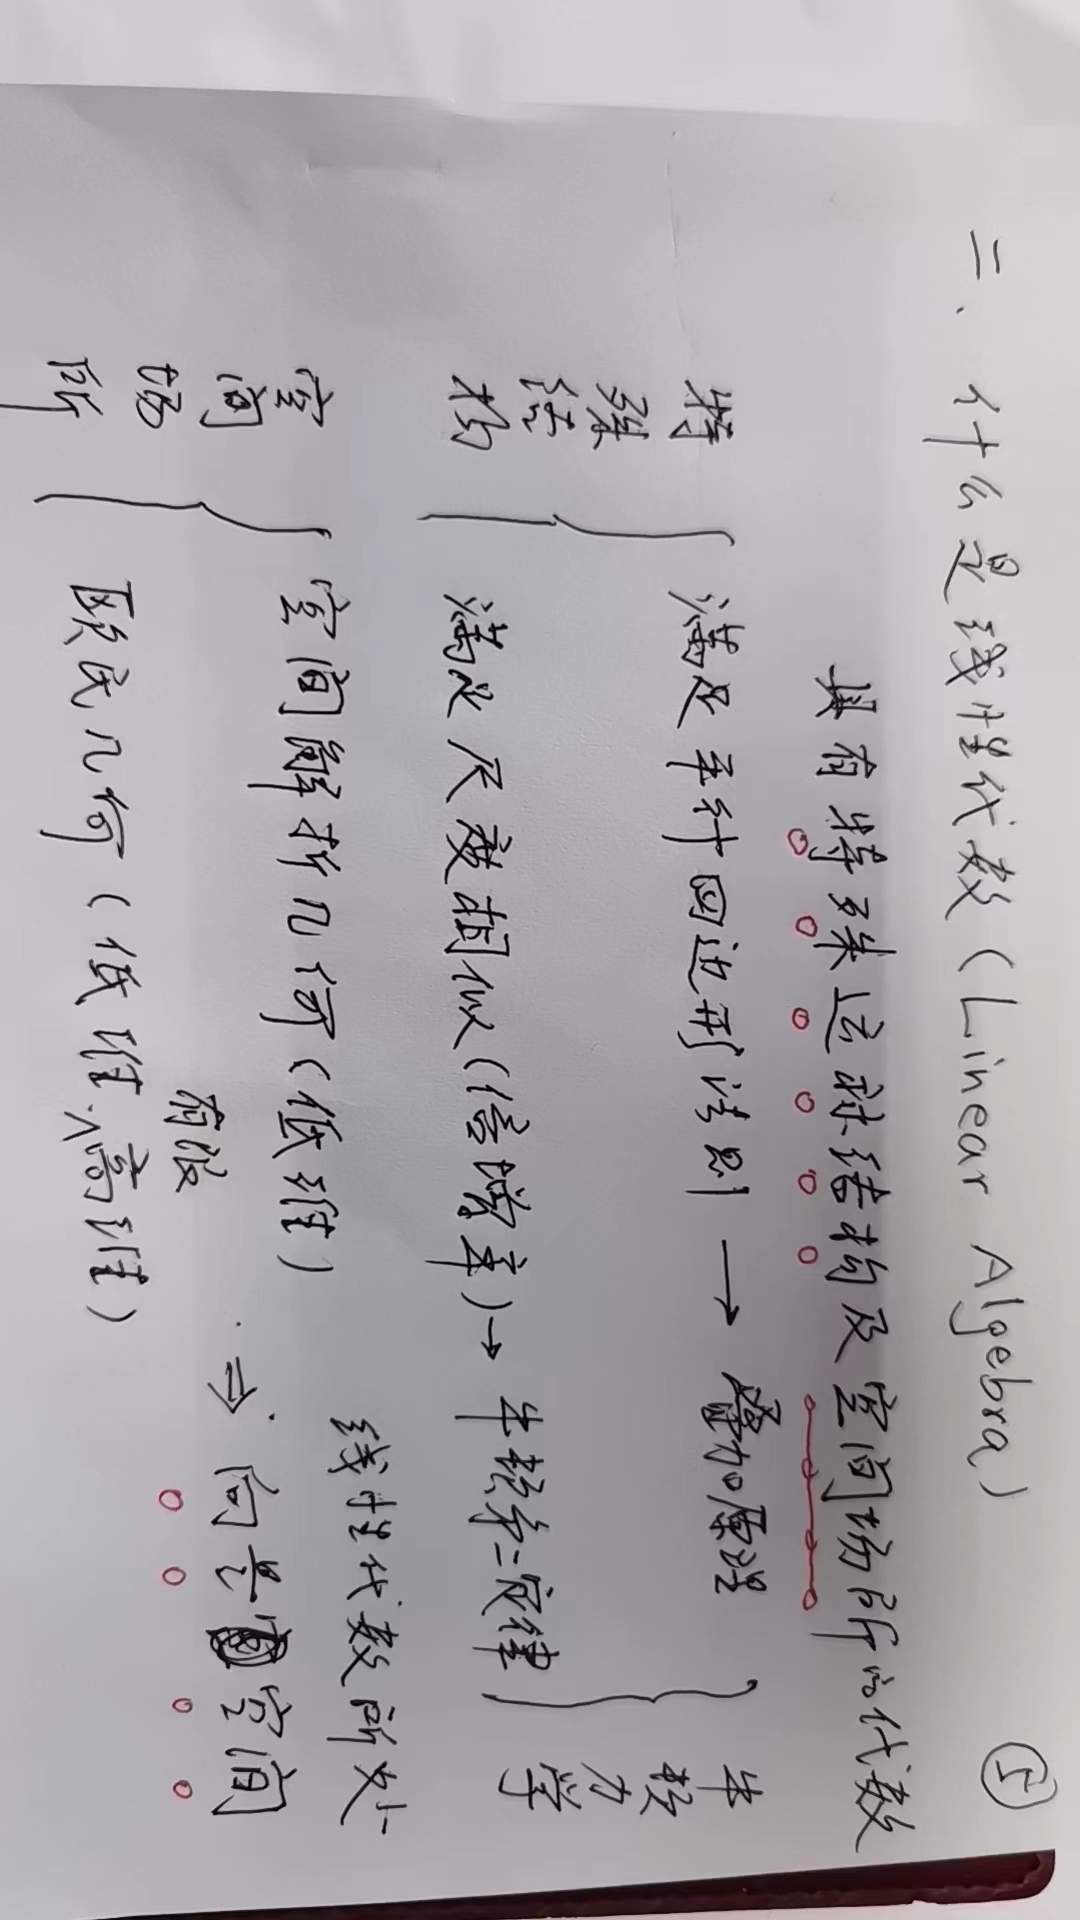 ⑤
二、什么是线性代数（Linear Algebra）
具有特殊运算结构及空间场所的代数
特殊结构
满足平行四边形法则 → 叠加原理
满足尺度相似（倍增率）→ 牛顿第二定律
牛顿力学
空间场所
空间解析几何（低维）
欧氏几何（低维、有限高维）
⇒
线性代数所处
向量空间